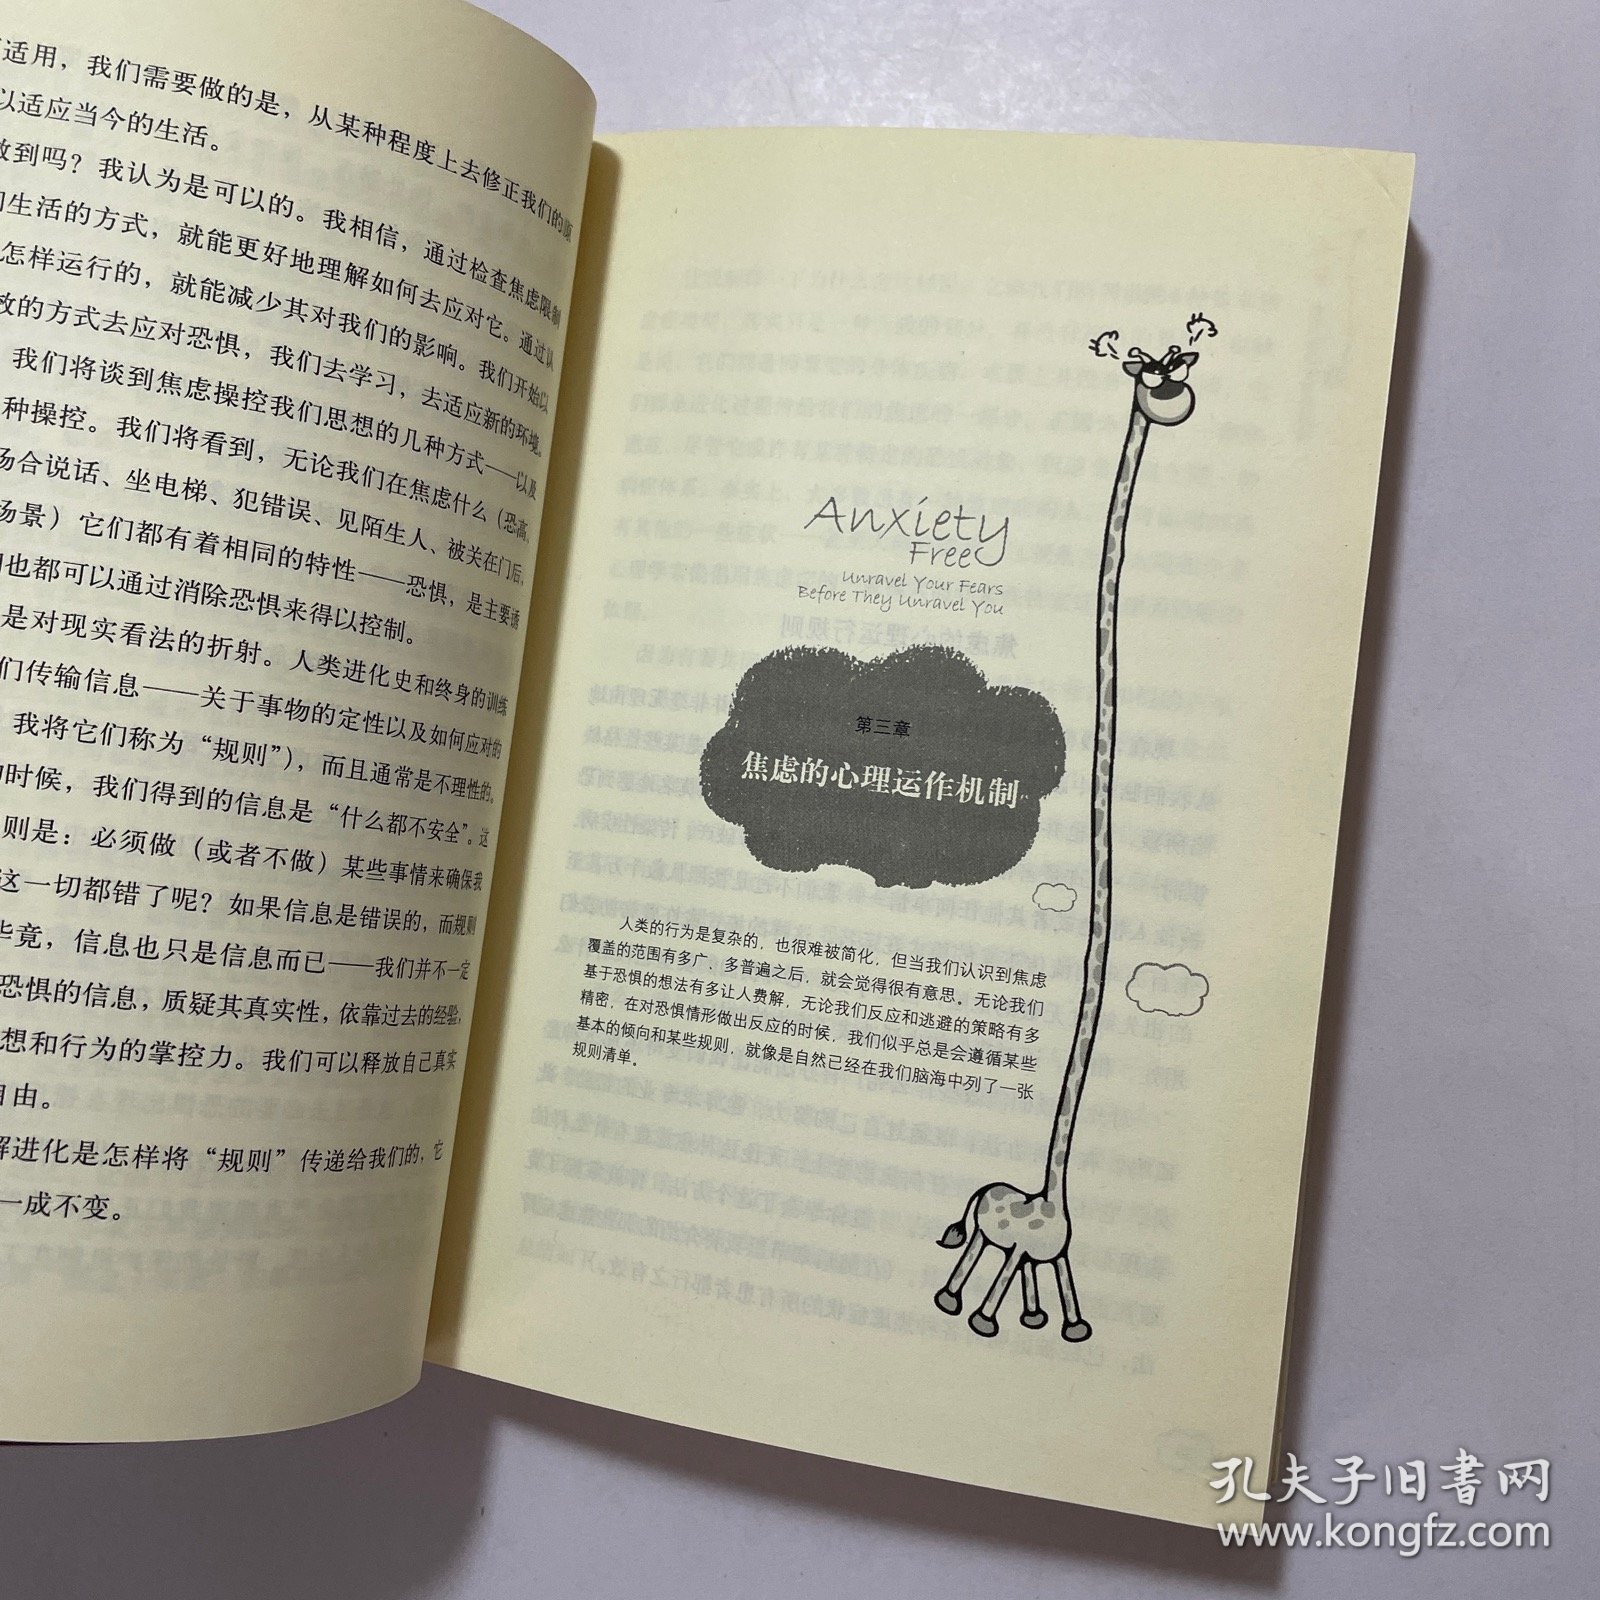 适用，我们需要做的是，从某种程度上去修正我们的
以适应当今的生活。
做到吗？我认为是可以的。我相信，通过检查焦虑限制
们生活的方式，就能更好地理解如何去应对它。通过认
怎样运行的，就能减少其对我们的影响。我们开始以
效的方式去应对恐惧，我们去学习，去适应新的环境。
我们将谈到焦虑操控我们思想的几种方式——以及
种操控。我们将看到，无论我们在焦虑什么（恐高、
场合说话、坐电梯、犯错误、见陌生人、被关在门后，
场景）它们都有着相同的特性——恐惧，是主要诱
们也都可以通过消除恐惧来得以控制。
是对现实看法的折射。人类进化史和终身的训练
们传输信息——关于事物的定性以及如何应对的
我将它们称为“规则”），而且通常是不理性的。
的时候，我们得到的信息是“什么都不安全”。这
则是：必须做（或者不做）某些事情来确保我
这一切都错了呢？如果信息是错误的，而规则
毕竟，信息也只是信息而已——我们并不一定
恐惧的信息，质疑其真实性，依靠过去的经验，
想和行为的掌控力。我们可以释放自己真实
自由。
解进化是怎样将“规则”传递给我们的，它
一成不变。
Anxiety
Free
Unravel Your Fears
Before They Unravel You
第三章
焦虑的心理运作机制
人类的行为是复杂的，也很难被简化，但当我们认识到焦虑
覆盖的范围有多广、多普遍之后，就会觉得很有意思。无论我们
基于恐惧的想法有多让人费解，无论我们反应和逃避的策略有多
精密，在对恐惧情形做出反应的时候，我们似乎总是会遵循某些
基本的倾向和某些规则，就像是自然已经在我们脑海中列了一张
规则清单。
孔夫子旧书网
www.kongfz.com